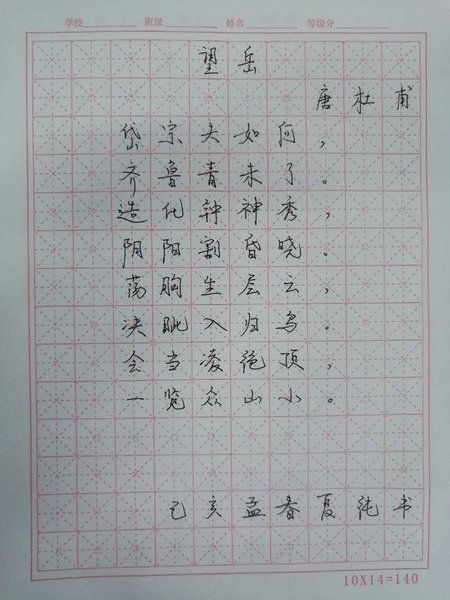 学校 班级 姓名 等级分
望岳
唐 杜甫
岱宗夫如何，
齐鲁青未了。
造化钟神秀，
阴阳割昏晓。
荡胸生层云，
决眦入归鸟。
会当凌绝顶，
一览众山小。
己亥孟春夏纯书
10X14=140